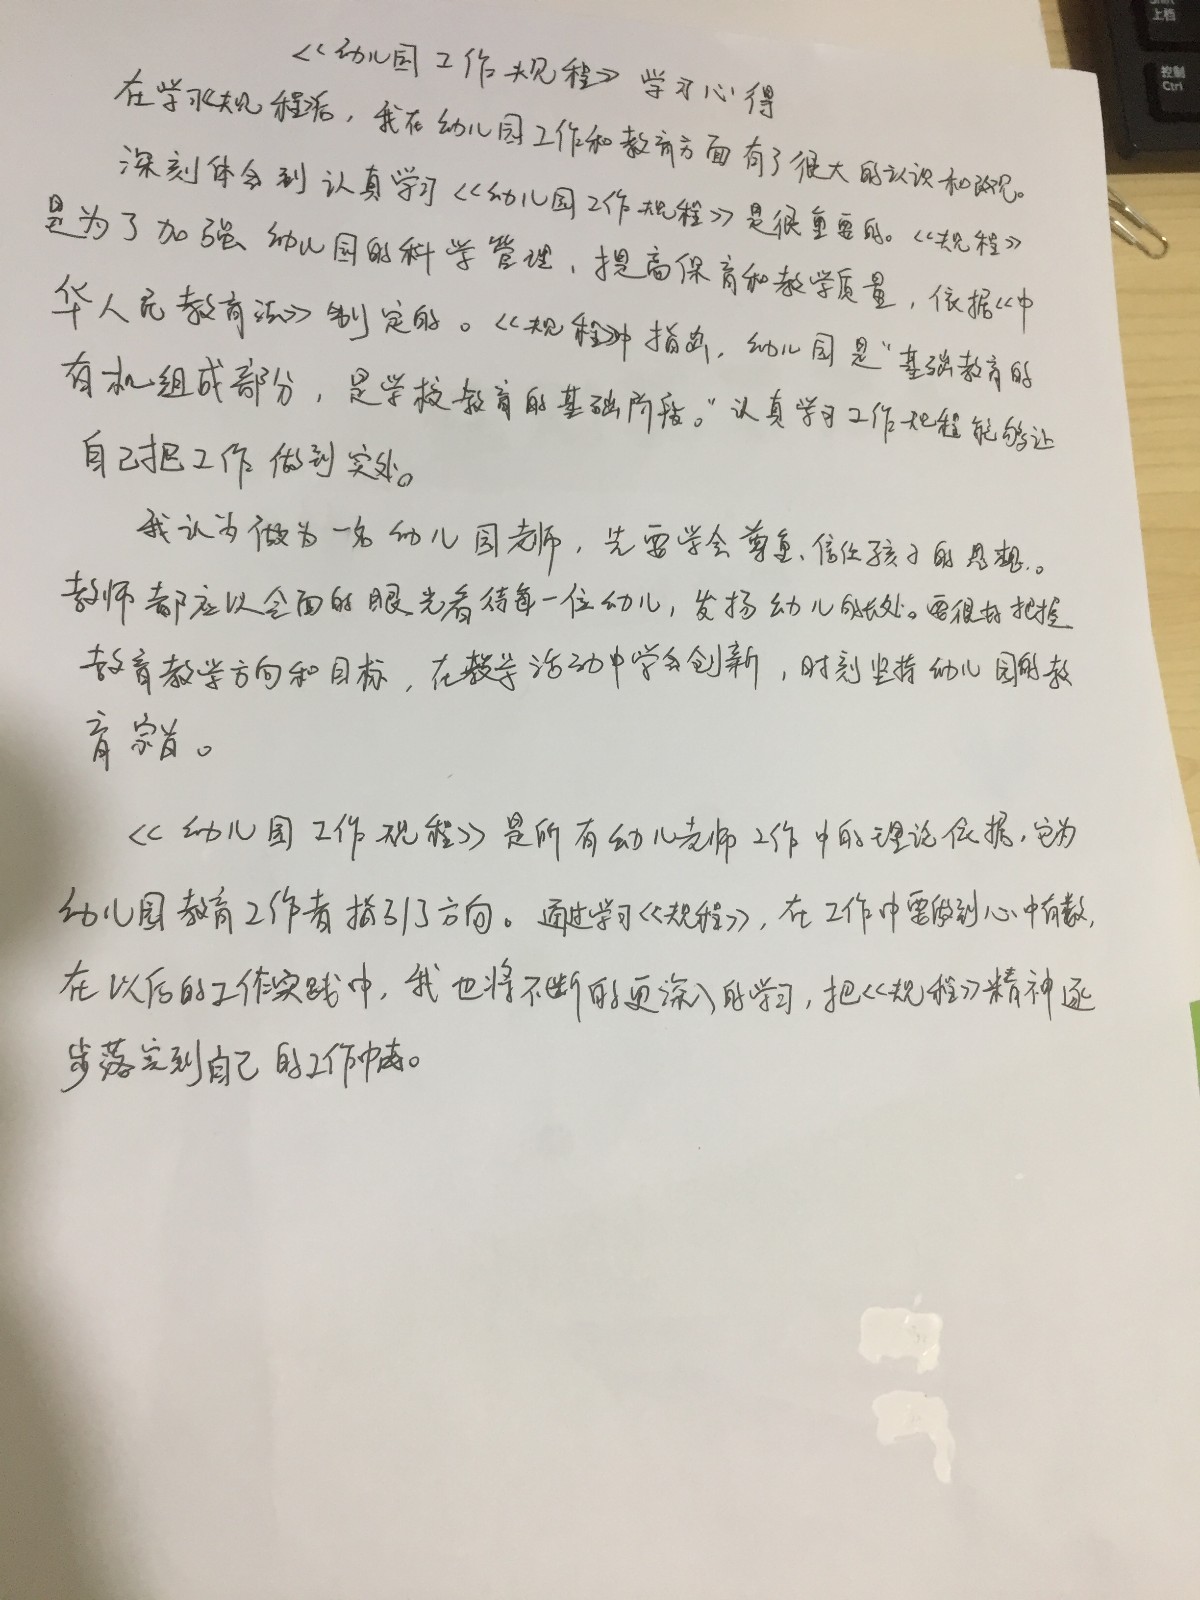 《幼儿园工作规程》学习心得
在学习《规程》后，我在幼儿园工作和教育方面有了很大的认识和改观。
深刻体会到认真学习《幼儿园工作规程》是很重要的。《规程》
是为了加强幼儿园的科学管理，提高保育和教学质量，依据《中
华人民教育法》制定的。《规程》中指出，幼儿园是"基础教育的
有机组成部分，是学校教育的基础阶段。"认真学习工作规程能够让
自己把工作做到实处。
我认为做为一名幼儿园老师，先要学会尊重、信任孩子的思想。
教师都应以全面的眼光看待每一位幼儿，发扬幼儿的长处。要很好把握
教育教学方向和目标，在教学活动中学会创新，时刻坚持幼儿园的教
育宗旨。
《幼儿园工作规程》是所有幼儿老师工作中的理论依据，它为
幼儿园教育工作者指引了方向。通过学习《规程》，在工作中要做到心中有数，
在以后的工作实践中，我也将不断的更深入的学习，把《规程》精神逐
步落实到自己的工作中去。
上档
Shift
控制
Ctrl